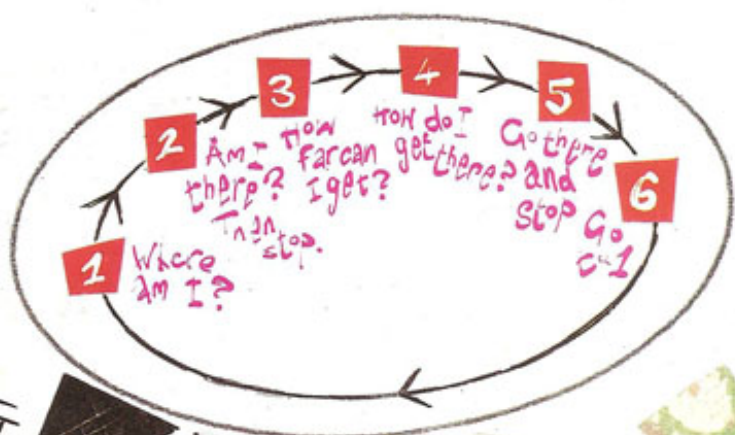 1
Where
am I?
2
Am I
there?
Then
stop.
3
How
far can
I get?
4
How do I
get there?
5
Go there
and
stop
6
Go